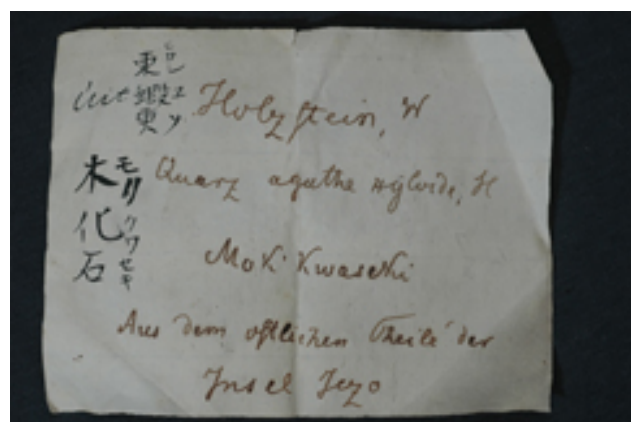 東蝦夷
Holzstein, W
木化石
クワセキ
Quarz agathe xyloide, H
Moku Kwaseki
Aus dem östlichen Theile der
Insel Jezo